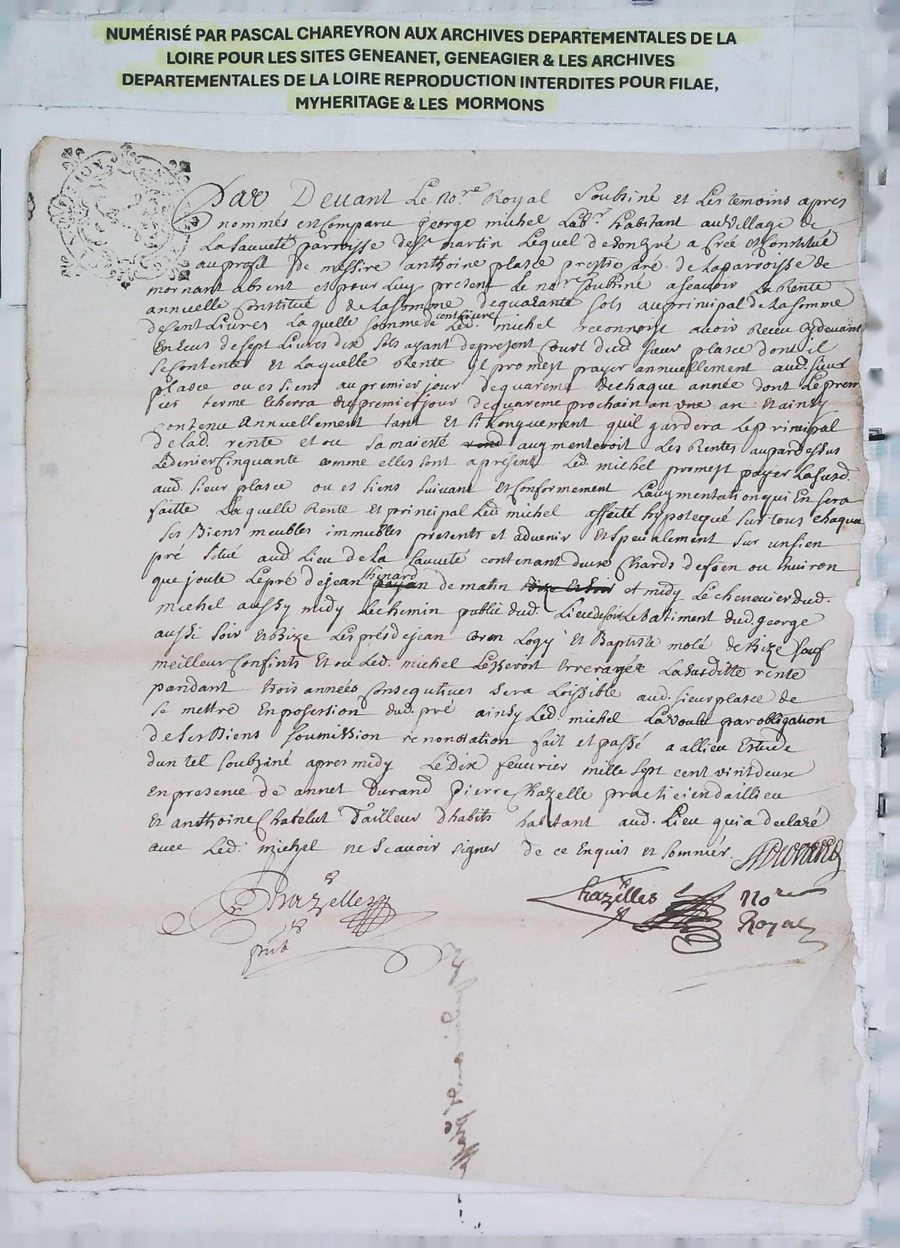 NUMÉRISÉ PAR PASCAL CHAREYRON AUX ARCHIVES DEPARTEMENTALES DE LA
LOIRE POUR LES SITES GENEANET, GENEAGIER & LES ARCHIVES
DEPARTEMENTALES DE LA LOIRE REPRODUCTION INTERDITES POUR FILAE,
MYHERITAGE & LES MORMONS
Par Devant Le No.re Royal Soubziné et Les temoins apres
nommés est Comparu George michel Lab.r habitant au village de
La Sauveté parroisse de St martin Lequel de son gré a Creé et Constitué
au profit de messire anthoine place prestre de La parroisse de
mornant absent et pour Luy present le no.re soubziné a scavoir La Rente
annuelle Constitué de La somme de quarante sols au principal de La somme
de sent Livres La quelle somme de cent Livre Led. michel reconnoit avoir Receu cy devant
En de sept Livres dix sols ayant de present Court dud. sieur place dont il
se contente et La quelle Rente il promest payer annuellement aud. sieur
place ou es siens au premier jour de quareme de chaque année dont Le prem
ier terme Echerra au premier jour de quareme prochain an une an et ainsy
contenu annuellement tant et si Longuement quil gardera Le principal
de Lad. rente et ou sa maiesté augmenteroit Les Rentes au pardessus
Le denier Cinquante comme elles sont a present Led. michel promest payer La susd.
aud. sieur place ou es siens suivant et Conformement Laugmentation qui En sera
faitte La quelle Rente et principal Led. michel affecté hypotequé sur tous chaqun
ses Biens meubles immubles presents et advenir et specialement sur un sien
pré situé aud. Lieu de La Sauveté contenant deux Chards de foen ou Environ
que joute Le pré de jean de matin et midy Le chenevier dud.
michel aussy midy Le chemin public dud. Lieu de soir Le batiment dud. george
aussi soir et bize Les prés de jean Logy et Baptiste molé de bize sauf
meilleur Confins et ou Led. michel Lesseroit erreragée La susditte rente
pandant trois années Consequtives sera Loisible aud. sieur place de
se mettre En posession dud. pré ainsy Led. michel La voulu par obligation
de ses Biens soumission renonssation fait et passé a allieu Estude
dun tel soubziné apres midy Le dix fevvrier mille sept cent vint deux
En presence de annet Durand pierre Chazelle practicien daillieu
et anthoine Chatelut Tailleur dhabits habitant aud. Lieu qui a declaré
avec Led. michel ne scavoir signer de ce Enquis et sommés ADurand
Chazelles
pnt
Chazelles No.re
Royal